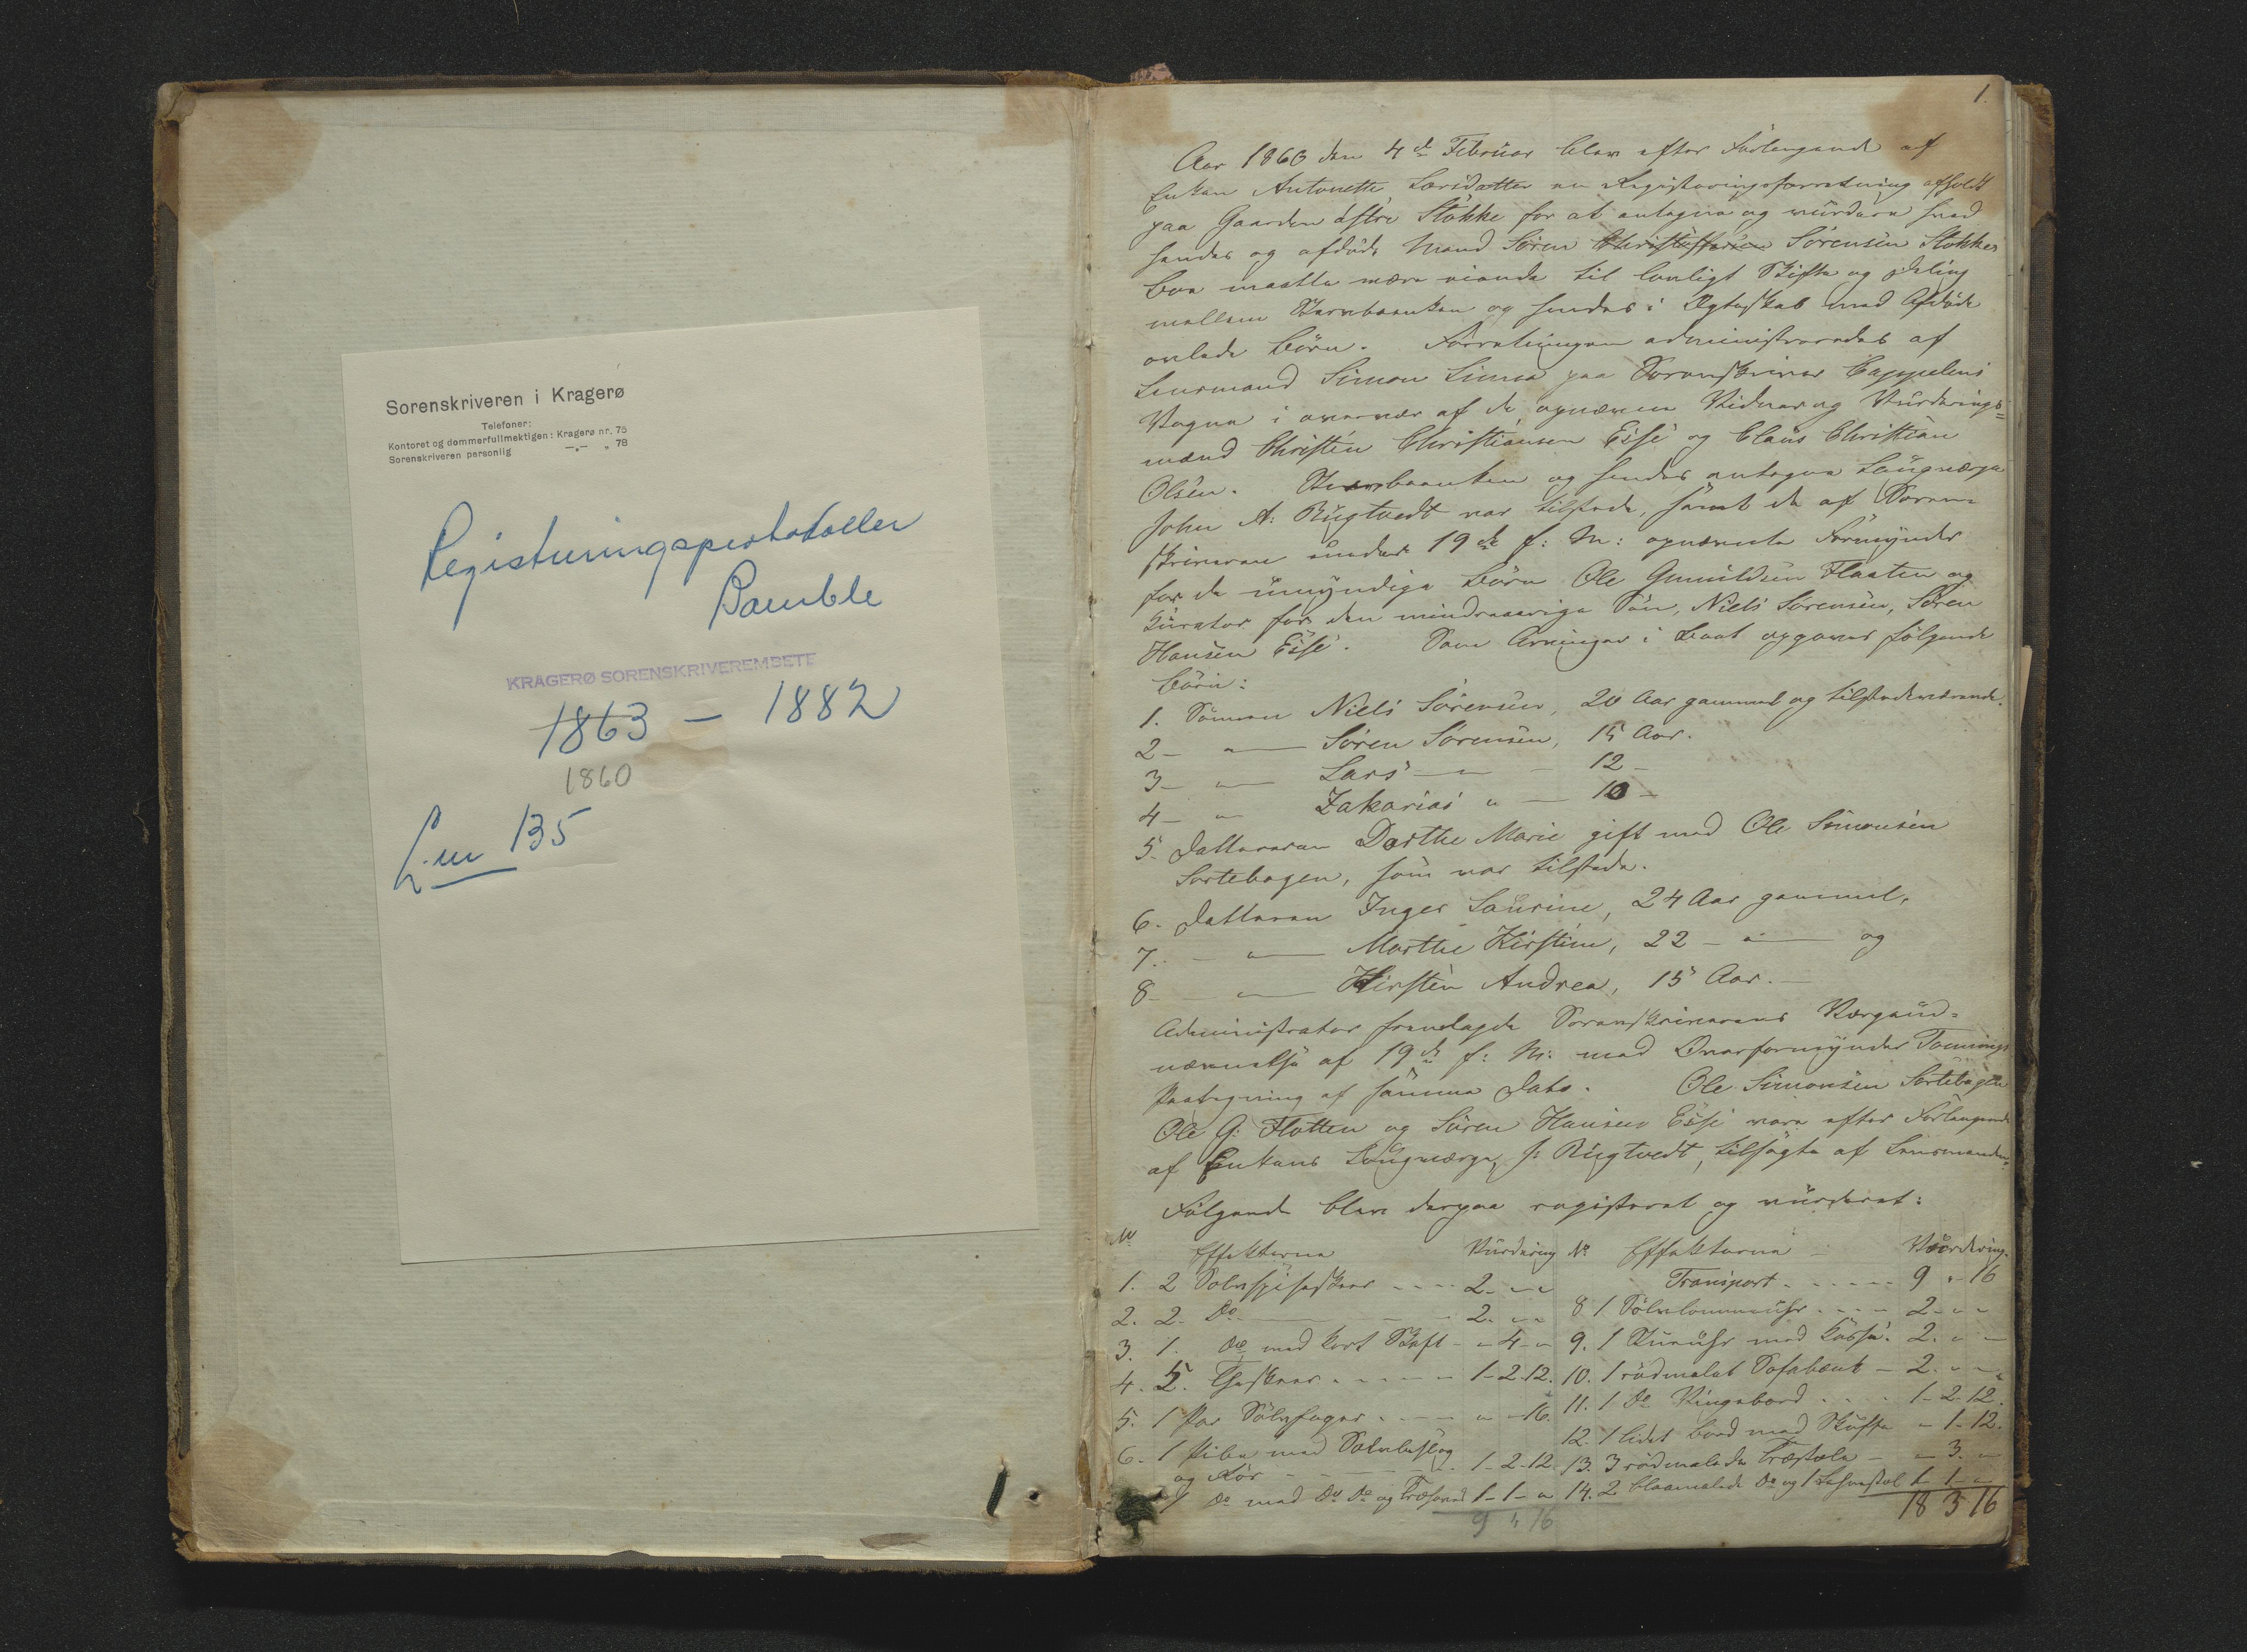 Sorenskriveren i Kragerø
Telefoner:
Kontoret og dommerfullmektigen: Kragerø nr. 75
Sorenskriveren personlig —„— „ 78
Registreringsprotokoller
Bamble
KRAGERØ SORENSKRIVEREMBETE
1863 — 1882
1860
L.nr 135
1.
Aar 1860 den 4de Februar blev efter Forlangende af
Enken Antonette Larsdatter en Registreringsforretning afholdt
paa Gaarden østre Stokke for at antegne og vurdere hvad
hendes og afdøde Mand Søren Christoffersen Sørensen Stokkes
Boe maatte være eiende til lovligt Skifte og Deling
mellem Stervboenken og hendes i Ægteskab med Afdøde
avlede Børn. Forretningen administreredes af
Lensmand Simon Simon paa Sorenskriver Cappelens
Vegne i overvær af de opnævnte Vidner og Vurderings=
mænd Christen Christiansen Eese og Claus Christian
Olsen. Stervboenken og hendes antagne Laugværge
John A: Rugtvedt var tilstede, samt de af Soren=
skriveren under 19de f: M: opnævnte Formynder
for de umyndige Børn Ole Gunuldsen Flaaten og
Curator for den mindreaarige Søn, Niels Sørensen, Søren
Hansen Eese. Som Arvinger i Boet opgaves følgende
Børn:
1. Sønnen Niels Sørensen, 20 Aar gammel og tilstedeværende.
2 - „ — Søren Sørensen, 15 Aar.
3 - „ — Lars — „ — 12 -
4 - „ Zakarias „ — 10 -
5. Datteren Dorthe Marie gift med Ole Simonsen
Sortebogen, som var tilstede.
6. Datteren Inger Laurine, 24 Aar gammel,
7. - „ — Marthe Kirstine, 22 - „ — og
8 - „ — Kirsten Andrea, 15 Aar. —
Administrator fremlagde Sorenskriverens Værgeud=
nævnelse af 19de f: M: med Overformynder Tønnings
Paategning af samme Dato. Ole Simonsen Sortebogen
Ole G: Flotten og Søren Hansen Eese vare efter Forlangende
af Enkens Laugværge, J: Rugtvedt, tilsagte af Lensmanden.
Følgende blev derpaa registreret og vurderet:
No Effekterne Vurdering No Effekterne Vurdering.
1. 2 Sølvspiseskeer - - - - 2 - „ - „
2. 2. Do - - 2. „ - „
3. 1. Do med kort Skaft - „ - 4 - „
4. 5. Theskeer - - - - 1 - 2. 12.
5. 1 Par Sølvfager - - - „ - „ 16.
6. 1 Pibe med Sølvbeslag
og Rør - - - - 1 - 2 - 12.
7 1 Do med Do Do og Træhoved 1 - 1 - „
9 „ 16
Transport - - - - 9 „ 16
8 1 Sølvlommeuhr - - - - 2 - „ - „
9. 1 Stueuhr med Kasse. 2. „ - „
10. 1 rødmalet Sofabænk - 2. „ - „
11. 1 Do Klapbord - - - 1 - 2. 12.
12. 1 lidet Bord med Skuffe - 1 - 12.
13. 3 rødmalede Træstole - „ - 3. „
14. 2 blaamalede Do og 1 Lehnestol 1 - 1 - „
18 3 16